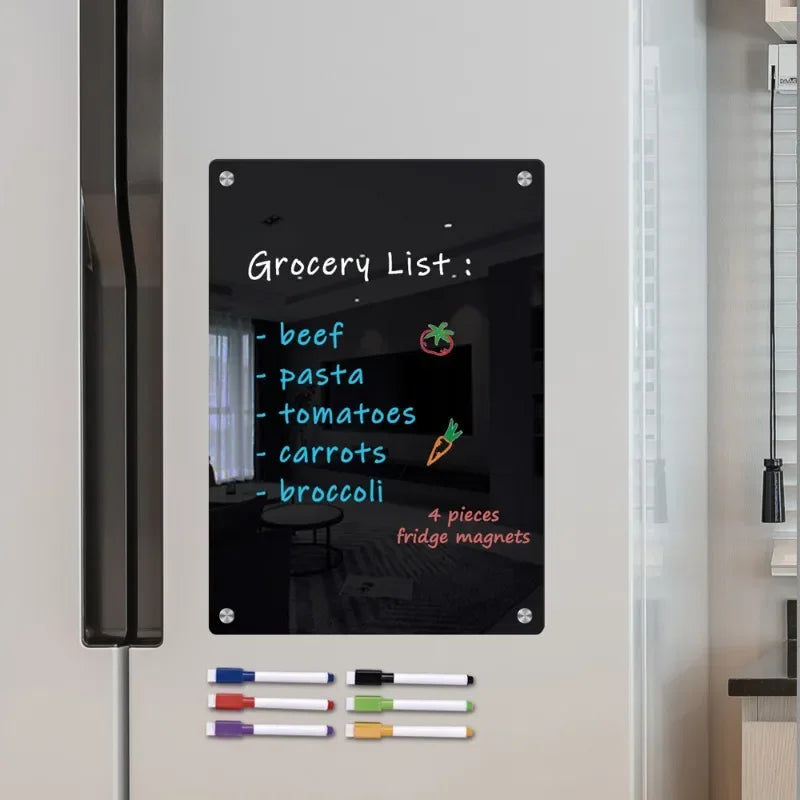 Grocery List :
- beef
- pasta
- tomatoes
- carrots
- broccoli
4 pieces
fridge magnets